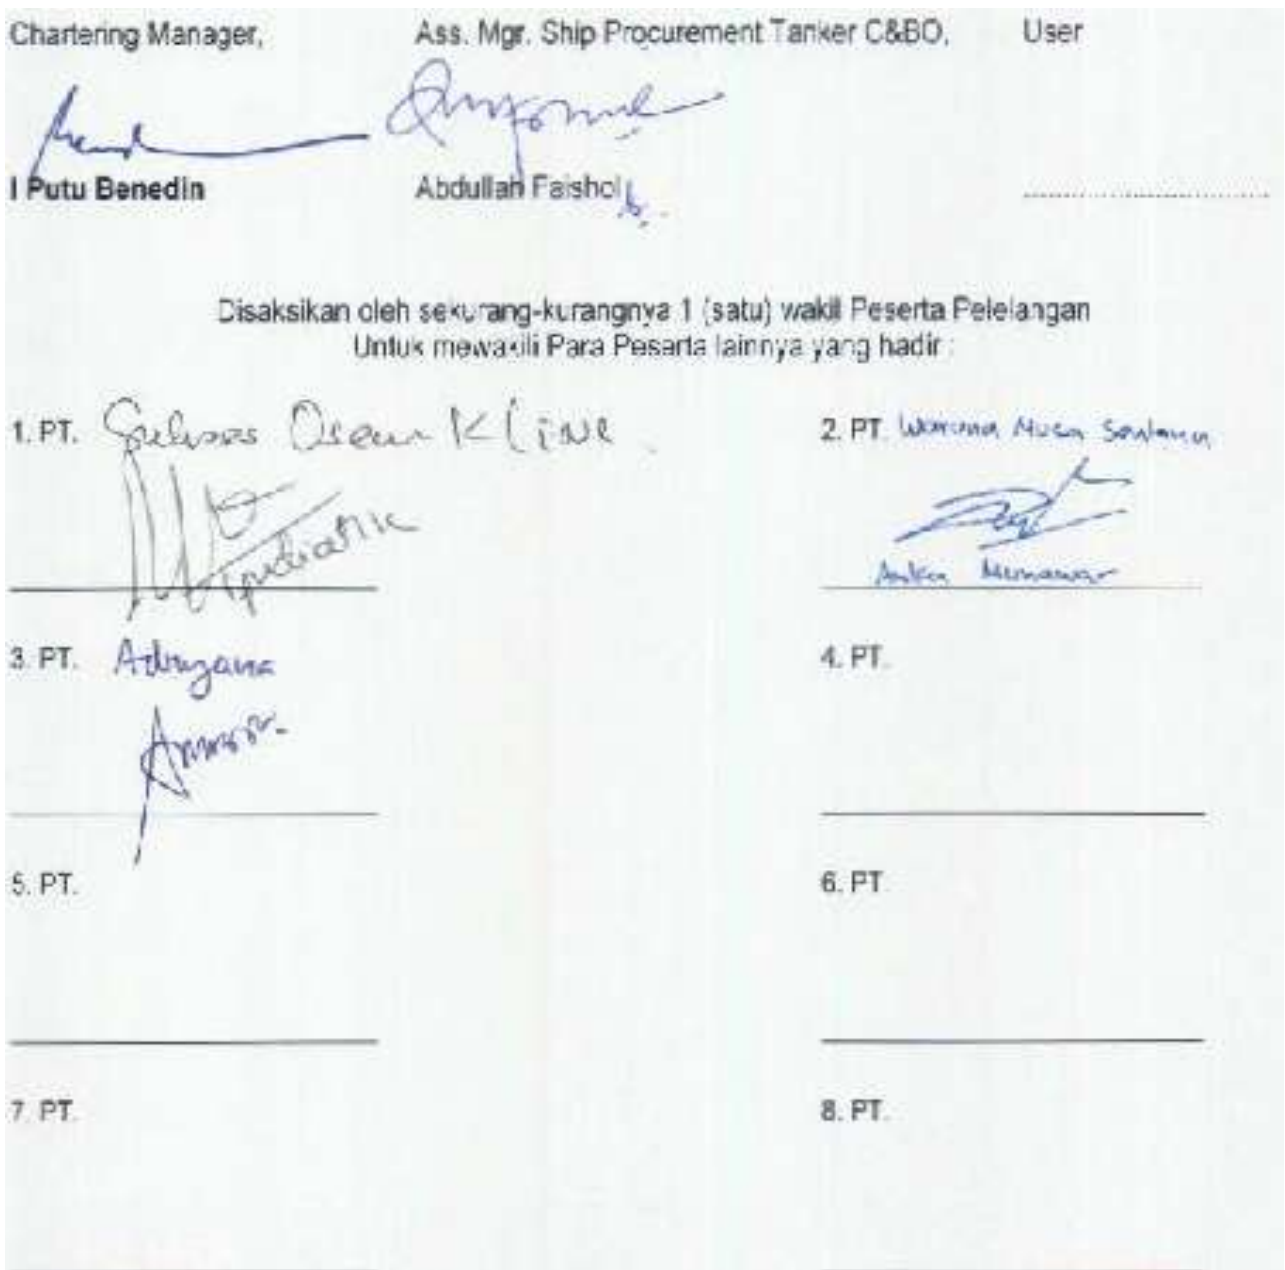 Chartering Manager, Ass. Mgr. Ship Procurement Tanker C&BO, User
I Putu Benedin Abdullah Faishol ................................
Disaksikan oleh sekurang-kurangnya 1 (satu) wakil Peserta Pelelangan
Untuk mewakili Para Peserta lainnya yang hadir :
1. PT. Sukses Osean Kline 2. PT. Waruna Nusa Sentana
Munawar
3. PT. Adnyana 4. PT.
5. PT. 6. PT
7. PT. 8. PT.